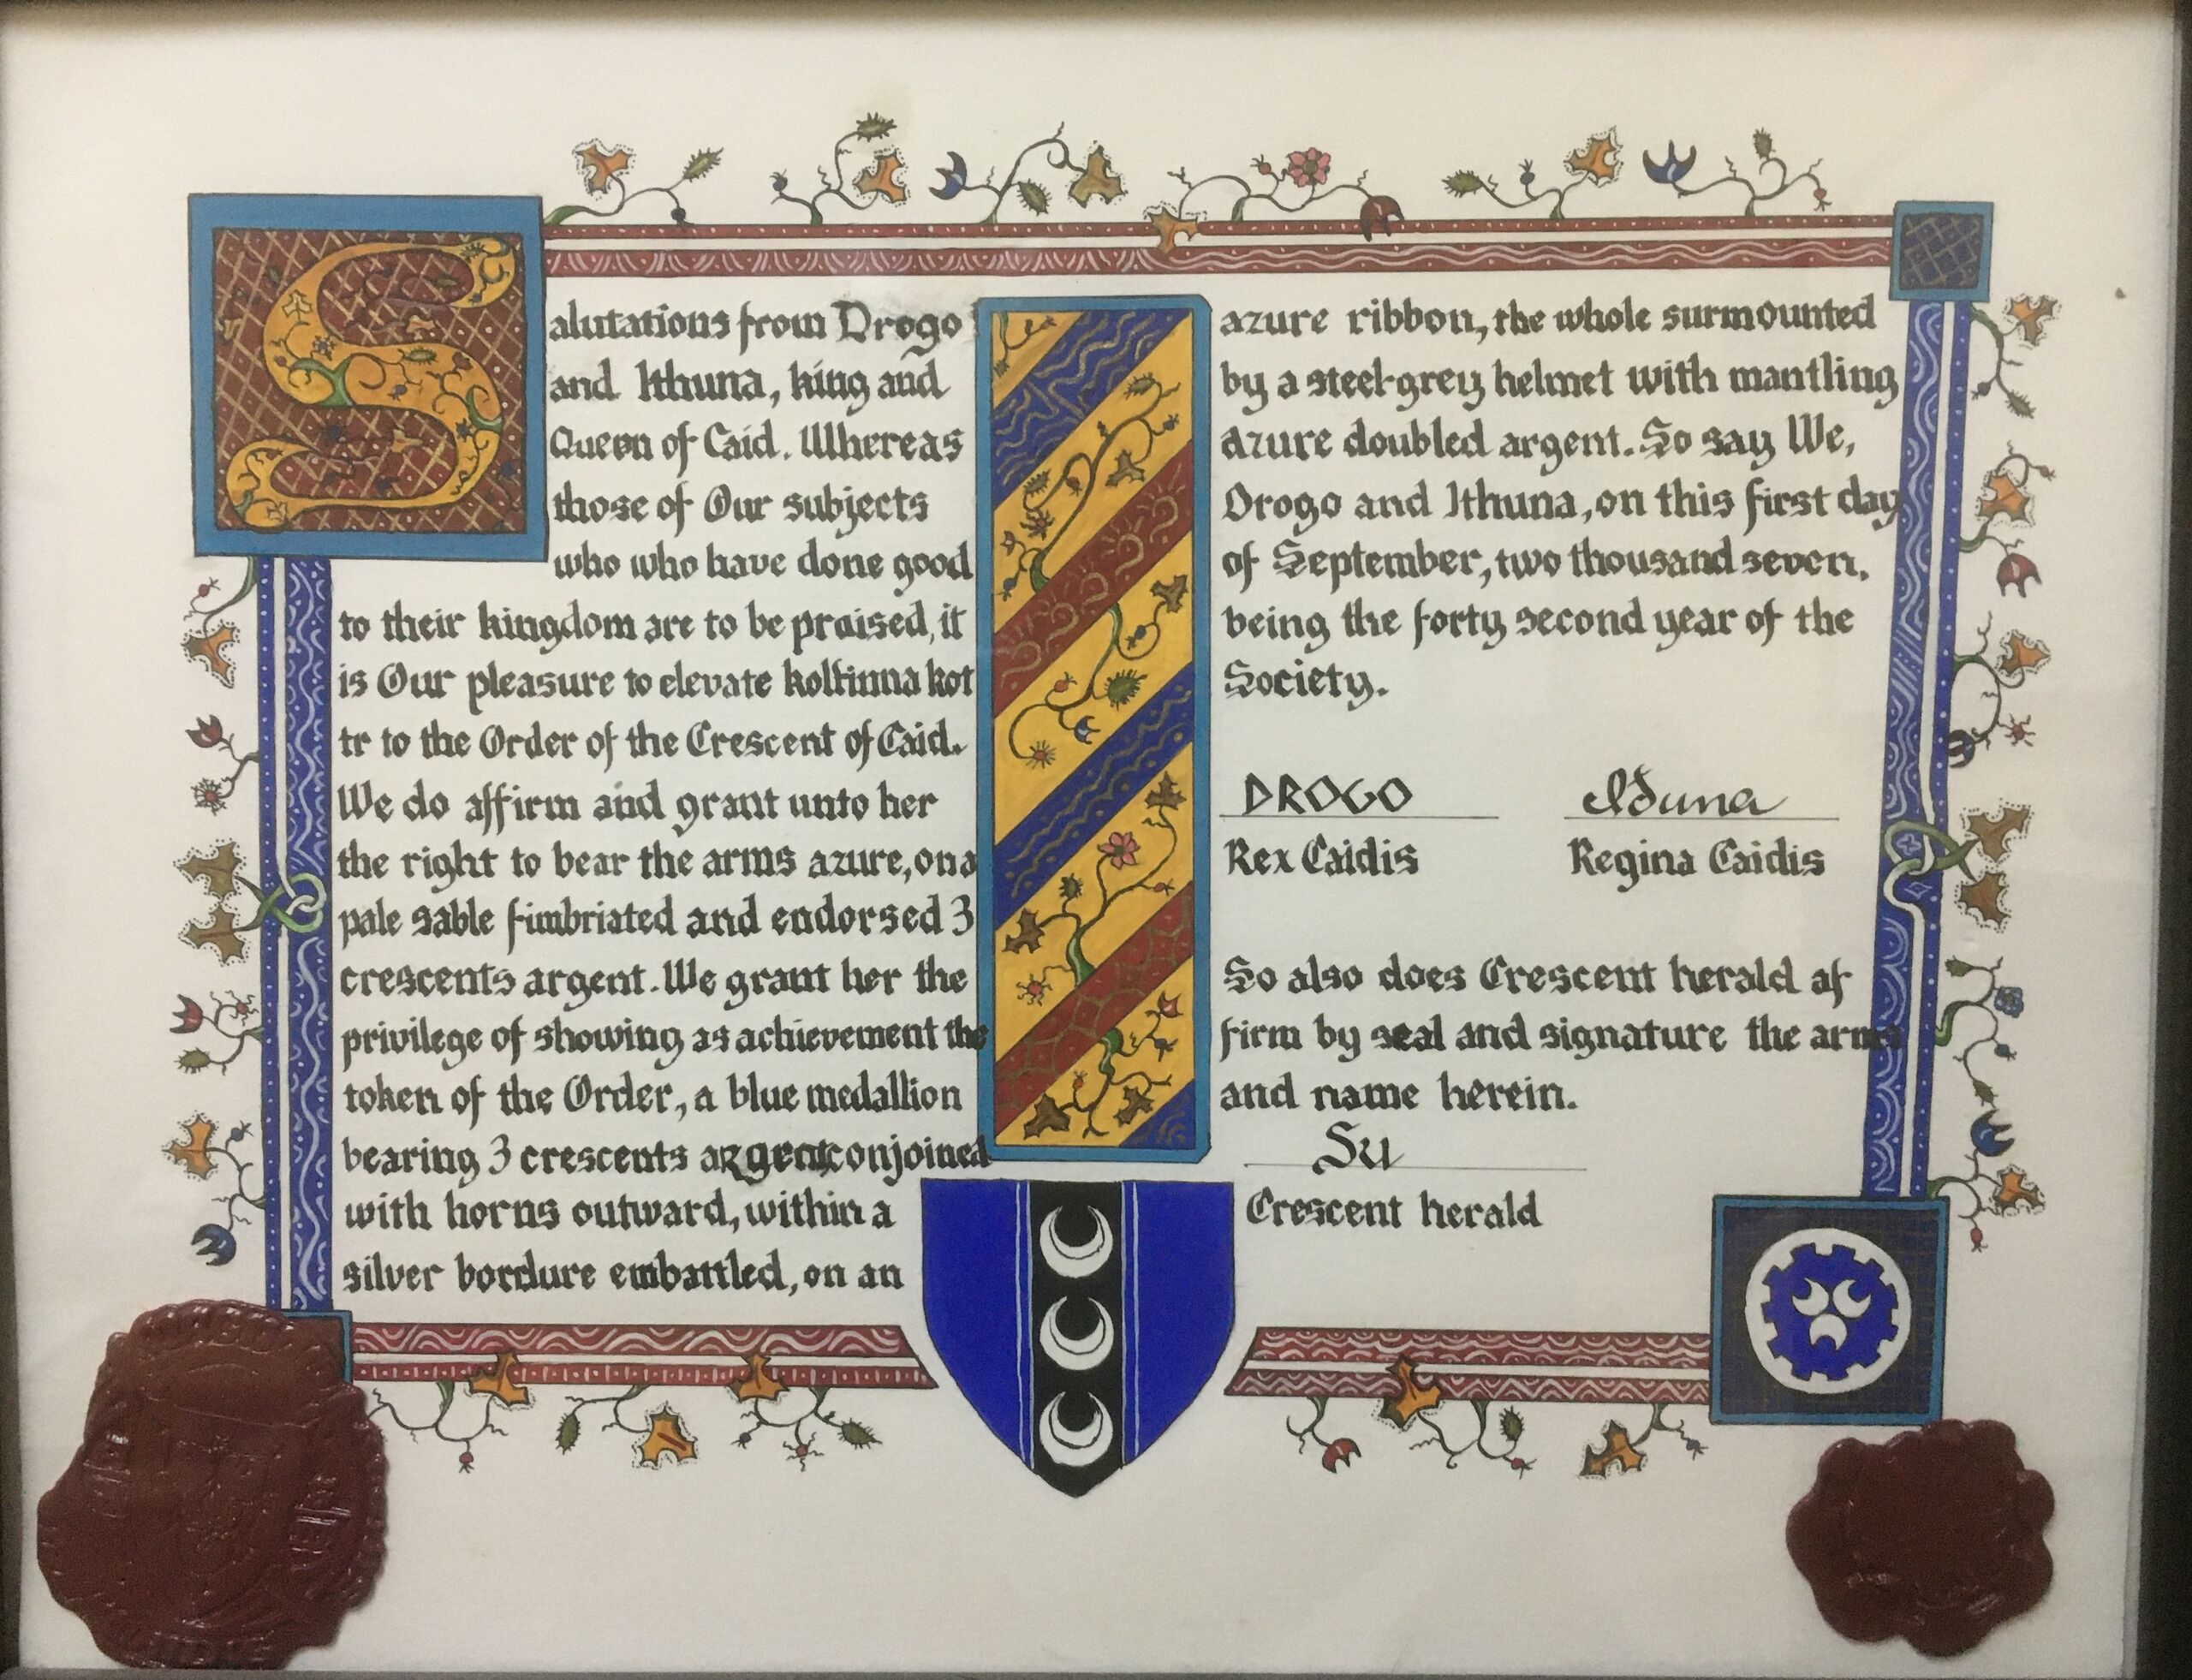 Salutations from Drogo
and Ithuna, king and
Queen of Caid. Whereas
those of Our subjects
who who have done good
to their kingdom are to be praised, it
is Our pleasure to elevate kolfinna kot
tr to the Order of the Crescent of Caid.
We do affirm and grant unto her
the right to bear the arms azure, on a
pale sable fimbriated and endorsed 3
crescents argent. We grant her the
privilege of showing as achievement the
token of the Order, a blue medallion
bearing 3 crescents argent conjoined
with horns outward, within a
silver bordure embattled, on an
azure ribbon, the whole surmounted
by a steel-grey helmet with mantling
azure doubled argent. So say We,
Drogo and Ithuna, on this first day
of September, two thousand seven,
being the forty second year of the
Society.
DROGO Iduna
Rex Caidis Regina Caidis
So also does Crescent herald af
firm by seal and signature the arms
and name herein.
Su
Crescent herald